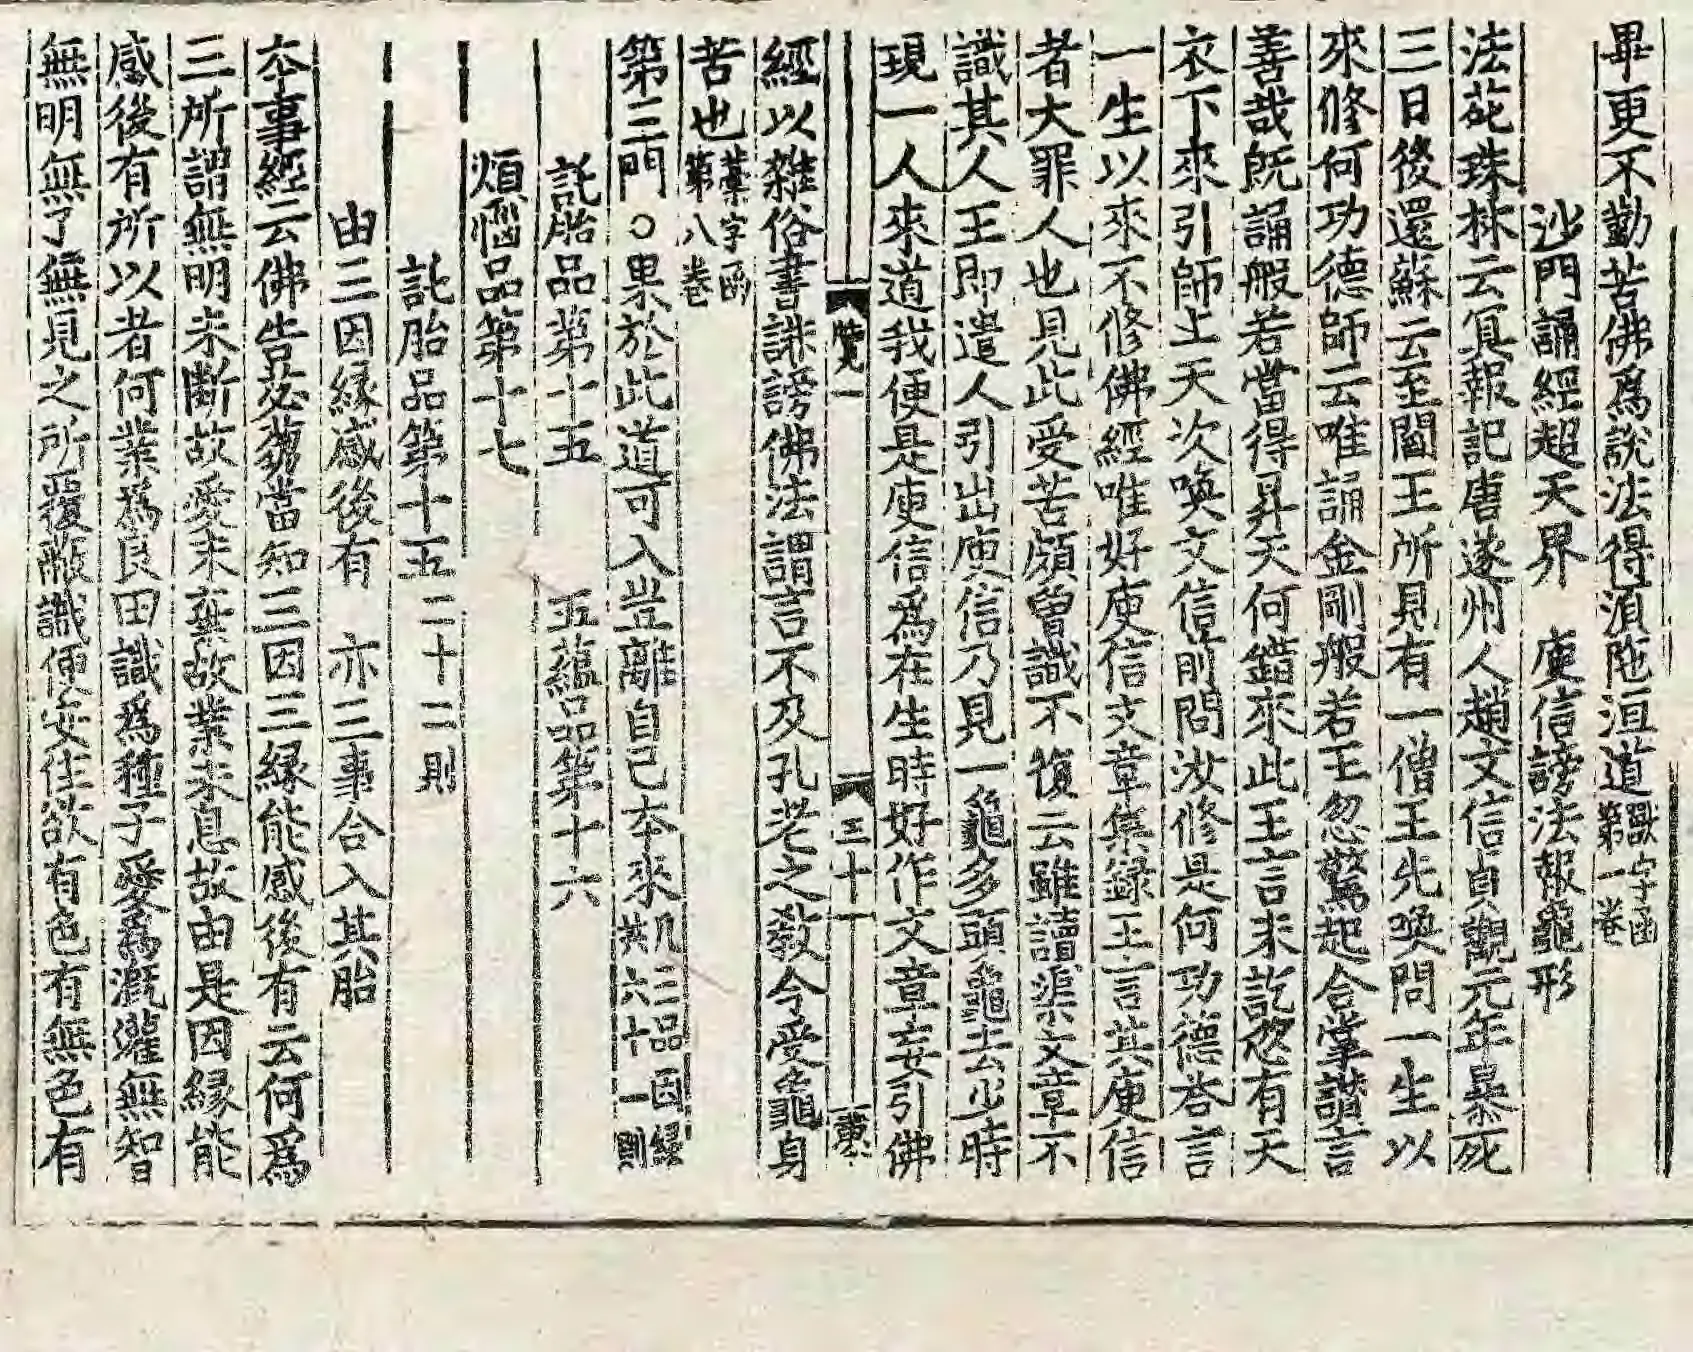 畢更不勤苦佛爲說法得湏陁洹道獸字函第一卷
沙門誦經超天界　庾信謗法報龜形
法苑珠林云冥報記唐遂州人趙文信貞觀元年暴死
三日後還蘇云至閻王所具有一僧王先喚問一生以
來修何功德師云唯誦金剛般若王忽驚起合掌讃言
善哉旣誦般若當得昇天何錯來此王言未訖忽有天
衣下來引師上天次喚文信前問汝修是何功德荅言
一生以來不修佛經唯好庾信文章集録王言其庾信
者大罪人也見此受苦頗曾識不復云雖讀渠文章不
識其人王即遣人引出庾信乃見一龜多頭龜去少時
現一人來道我便是庾信爲在生時好作文章妄引佛
覽一　三十一
經以雜俗書誹謗佛法謂言不及孔老之敎今受龜身
苦也藁字函第八卷
第三門○果於此道可入豈離自己本來凡三品因縁共六十一則
託胎品第十五　五蘊品第十六
煩惱品第十七
託胎品第十五二十二則
由三因縁感後有　亦三事合入其胎
本事經云佛告苾蒭當知三因三縁能感後有云何爲
三所謂無明未斷故愛未棄故業未息故由是因縁能
感後有所以者何業爲良田識爲種子愛爲漑灌無智
無明無了無見之所覆蔽識便安住欲有色有無色有